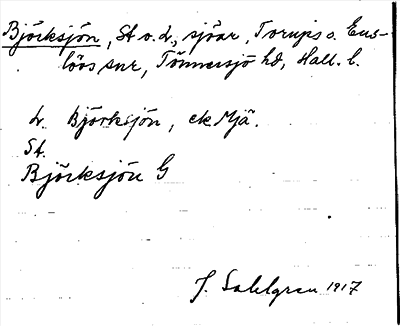 Björksjön, St o. L, sjöar, Torups o. Ens-
lövs snr, Tönnersjö hd, Hall. l.
L. Björksjön, ek Mjä.
St.
Björksjön G
J. Sahlgren 1917